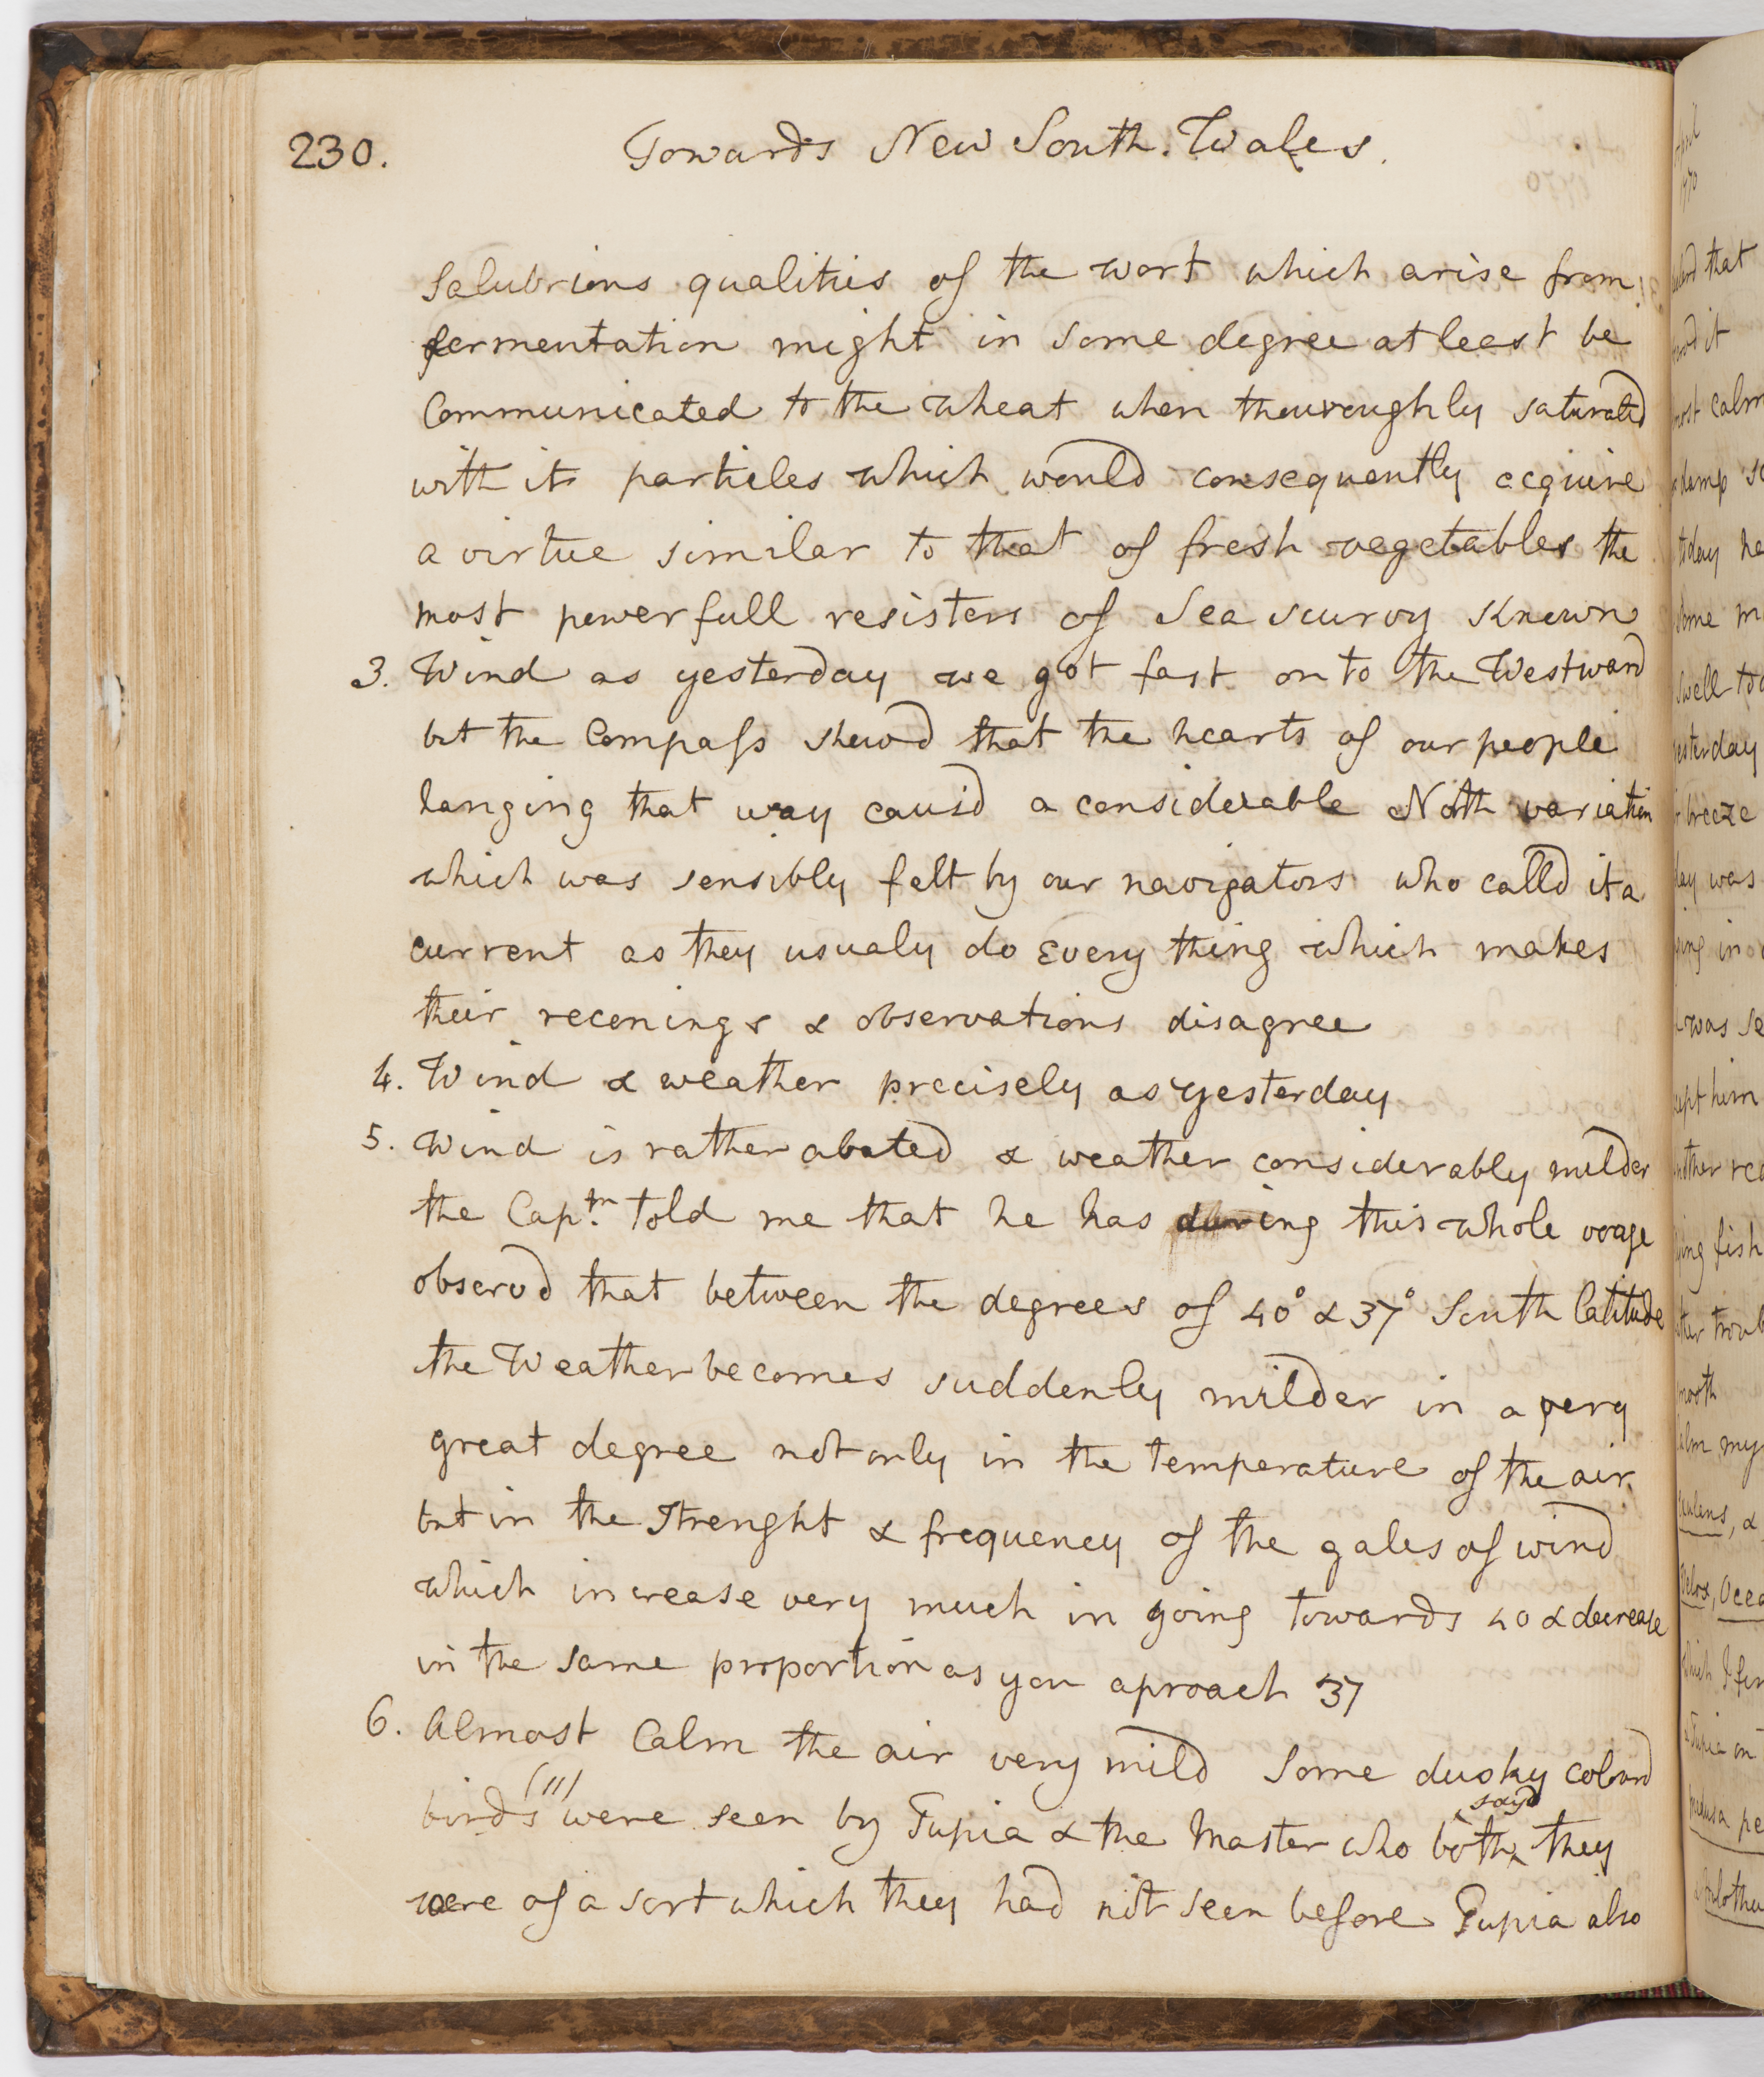 230.
Towards New South Wales.
Salubrious qualities of the wort which arise from
fermentation might in some degree at leest be
Communicated to the wheat when thouroughly saturated
with its particles which would consequently acquire
a virtue similar to that of fresh vegetables the
most powerfull resisters of Sea scurvy known
3. Wind as yesterday we got fast on to the Westward
but the Compass shewd that the hearts of our people
hanging that way caus'd a considerable North variation
which was sensibly felt by our navigators who calld it a
current as they usualy do Every thing which makes
their reconings & observations disagree
4. Wind & weather precisely as yesterday
5. Wind is rather abated & weather considerably milder
the Captn. told me that he has during this whole voage
observd that between the degrees of 40° & 37° South latitude
the Weather becomes suddenly milder in a very
great degree not only in the temperature of the air
but in the Strenght & frequency of the gales of wind
which increase very much in going towards 40 & decrease
in the same proportion as you aproach 37
6. Almost Calm the air very mild some dusky colourd
birds (11) were seen by Tupia & the Master who both sayd they
were of a sort which they had not seen before Tupia also
that
it
calm
damp
today
some
swell
yesterday
breeze
was
in
was
him
fish
my
&
which I
Tupia on